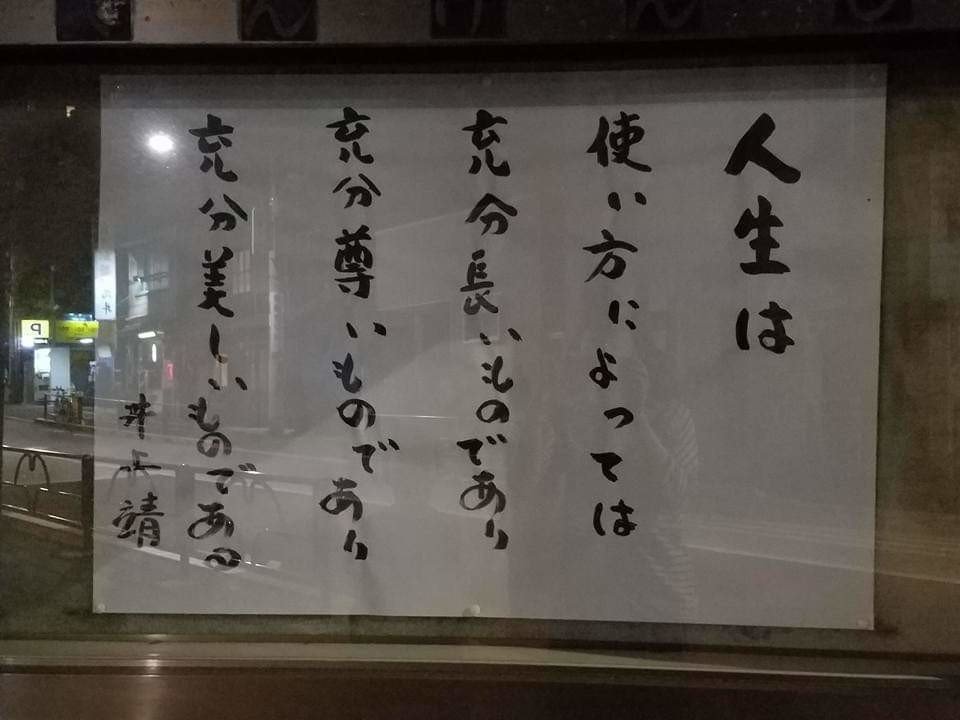 人生は
使い方によっては
充分長いものであり
充分尊いものであり
充分美しいものである
井上靖
P